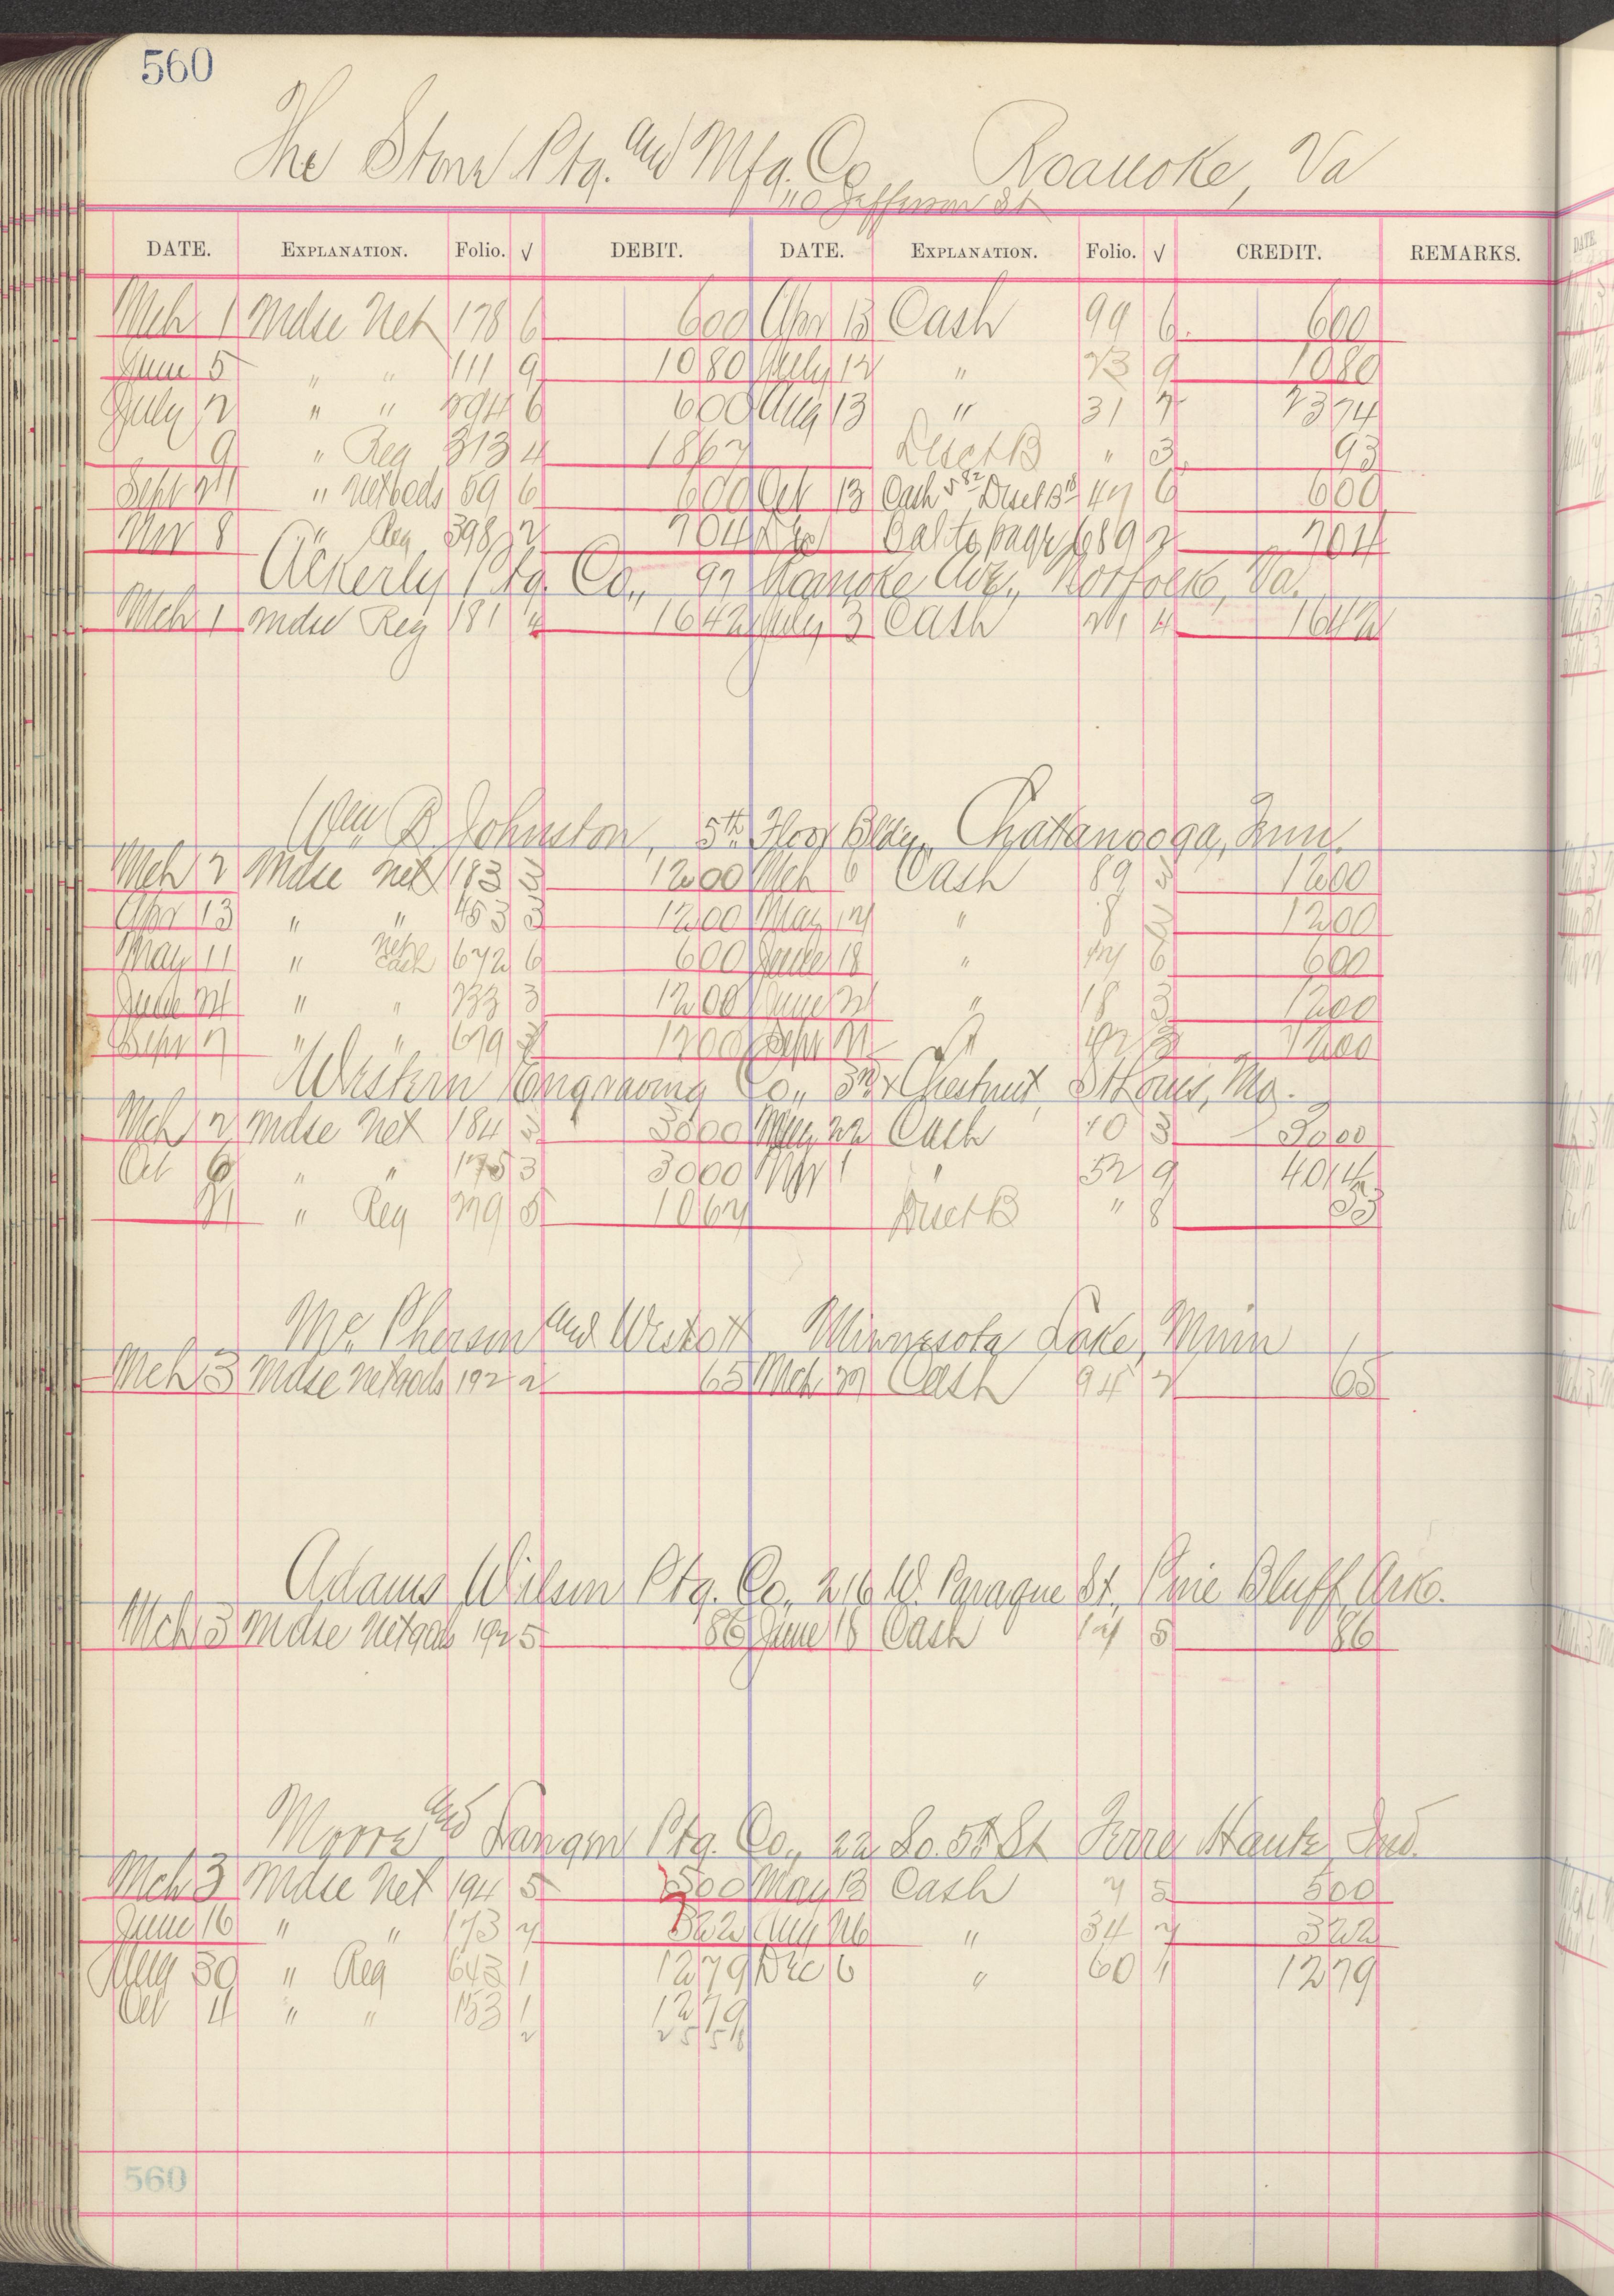 560
The Stone Ptg. and Mfg. Co Roanoke, Va
110 Jefferson St
DATE. EXPLANATION. Folio. √ DEBIT. DATE. EXPLANATION. Folio. √ CREDIT. REMARKS.
Mch 1 Mdse Net 178 6 600 Apr 13 Cash 99 6 600
June 5 " " 111 9 1080 July 12 " 23 9 1080
July 2 " " 294 6 600 Aug 13 " 31 7 2374
9 " Reg 313 4 1867 Disct B " 3 93
Sept 24 " 59 6 600 Oct 13 Cash Disct B 47 6 600
Nov 8 " Reg 398 2 704 Bal to page 689 2 704
Ackerly Ptg. Co., 97 Roanoke Ave., Norfolk, Va.
Mch 1 Mdse Reg 181 4 1642 July 3 Cash 21 4 1642
Geo B Johnston, 5th Floor Bldg., Chatanooga, Tenn.
Mch 2 Mdse Net 183 3 1200 Mch 6 Cash 89 3 1200
Apr 13 " " 453 3 1200 May 14 " 8 3 1200
May 11 " 672 6 600 June 18 " 14 6 600
June 21 " " 233 3 1200 June 21 " 18 3 1200
Sept 7 " " 679 3 1200 Sept 21 " 42 3 1200
Western Engraving Co., 3rd & Chestnut, St Louis, Mo.
Mch 2 Mdse Net 184 3 3000 May 22 Cash 10 3 3000
Oct 6 " " 175 3 3000 Nov 1 " 52 9 4014
21 " Reg 279 5 1067 Disct B " 8 53
Mc Pherson and Westcott Minnesota Lake, Minn
Mch 3 Mdse Netgods 192 2 65 Mch 27 Cash 94 2 65
Adams Wilson Ptg. Co., 216 W. Baraque St., Pine Bluff, Ark.
Mch 3 Mdse Netgods 192 5 86 June 18 Cash 14 5 86
Moore and Langen Ptg. Co., 22 So. 5th St Terre Haute, Ind.
Mch 3 Mdse Net 194 5 500 May 13 Cash 7 5 500
June 16 " " 173 7 322 Aug 26 " 34 7 322
Aug 30 " Reg 643 1 1279 Dec 6 " 60 1 1279
Oct 4 " " 153 1 1279
2 2558
560